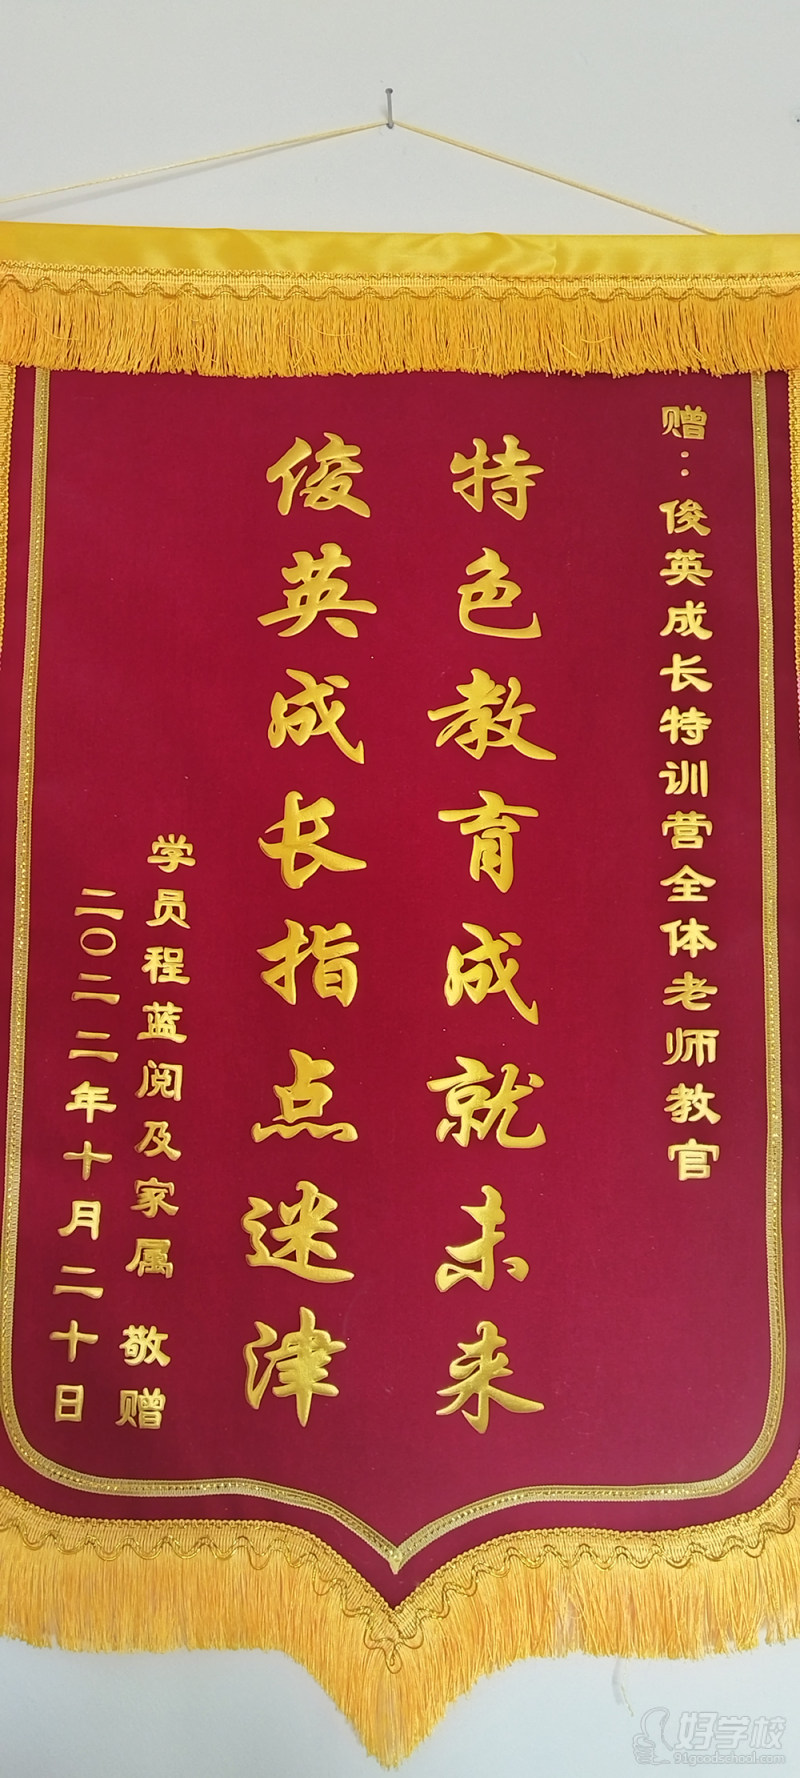 赠：俊英成长特训营全体老师教官
特色教育成就未来
俊英成长指点迷津
学员程蓝阅及家属 敬赠
二〇二二年十月二十日
好学校
91goodschool.com